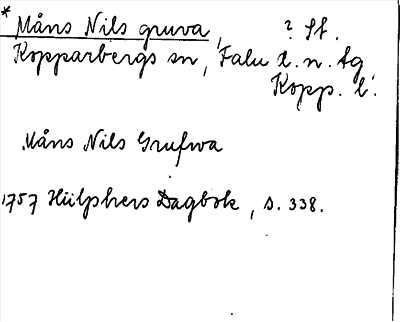 * Måns Nils gruva, ? St.
Kopparbergs sn, Falu d. n. tg
Kopp. l.
Måns Nils Grufwa
1757 Hülphers Dagbok, s. 338.